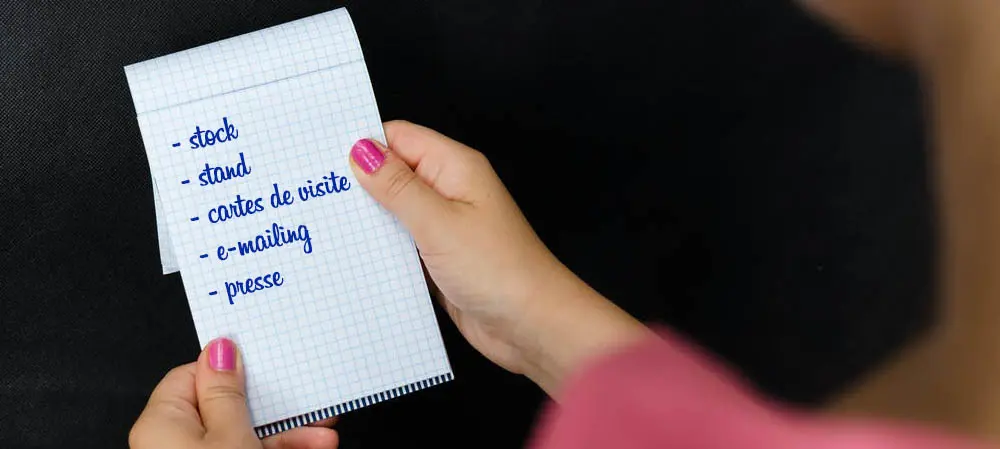 - stock
- stand
- cartes de visite
- e-mailing
- presse